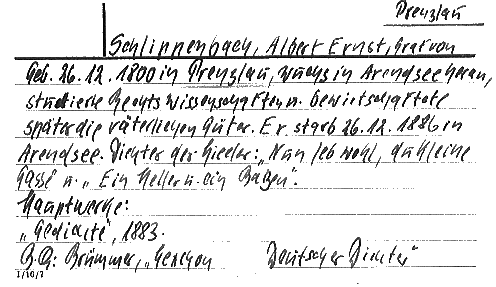 Prenzlau
Schlippenbach, Albert Ernst, Graf von
Geb. 26.12.1800 in Prenzlau, wuchs in Arendsee heran,
studierte Rechtswissenschaften u. bewirtschaftete
später die väterlichen Güter. Er starb 26.12.1886 in
Arendsee. Dichter der Lieder: „Nun leb wohl, du kleine
Gasse" u. „Ein Heller u. ein Batzen".
Hauptwerke:
„Gedichte", 1883.
Brümmer, „Lexikon Deutscher Dichter"
I/10/7